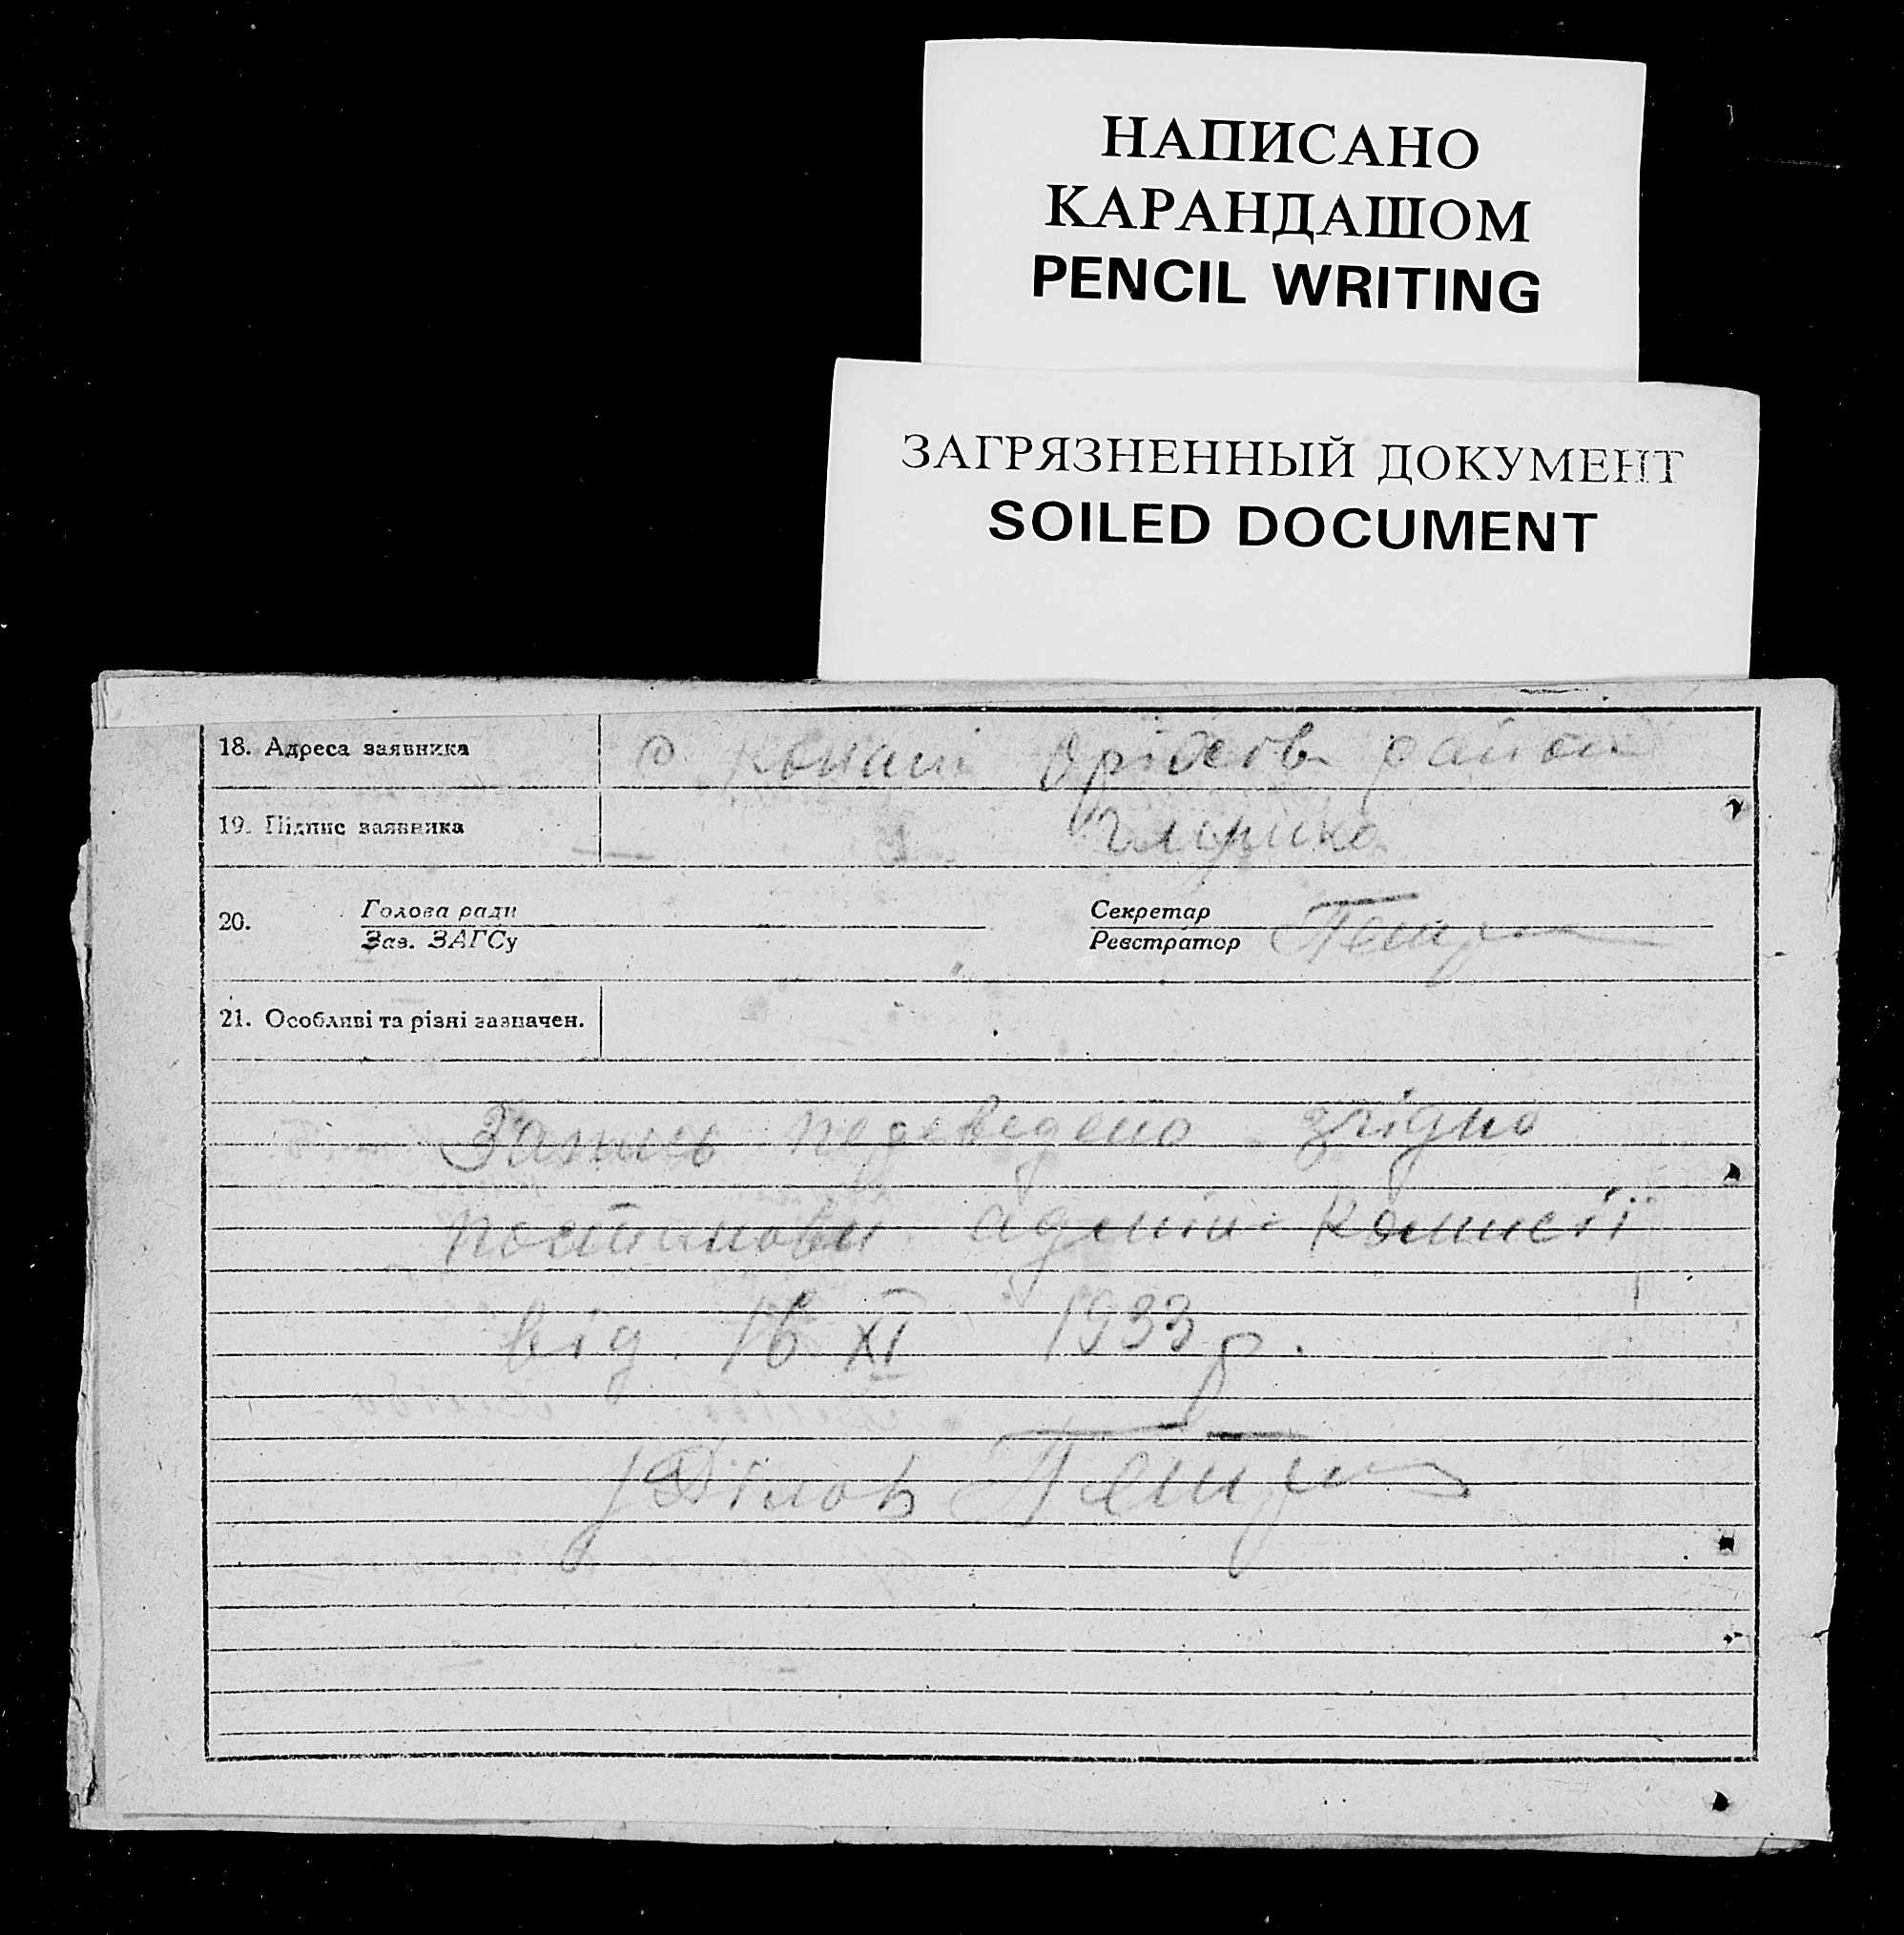 НАПИСАНО
КАРАНДАШОМ
PENCIL WRITING
ЗАГРЯЗНЕННЫЙ ДОКУМЕНТ
SOILED DOCUMENT
18. Адреса заявника с. район
19. Підпис заявника
20. Голова ради Секретар
Зав. ЗАГСу Реєстратор
21. Особливі та різні зазначен.
Запись переведено згідно
постановы адмін. комисії
від 16 XI 1933 р.